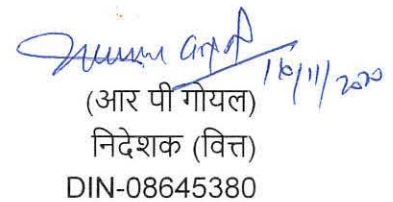 10/11/2020
(आर पी गोयल)
निदेशक (वित्त)
DIN-08645380